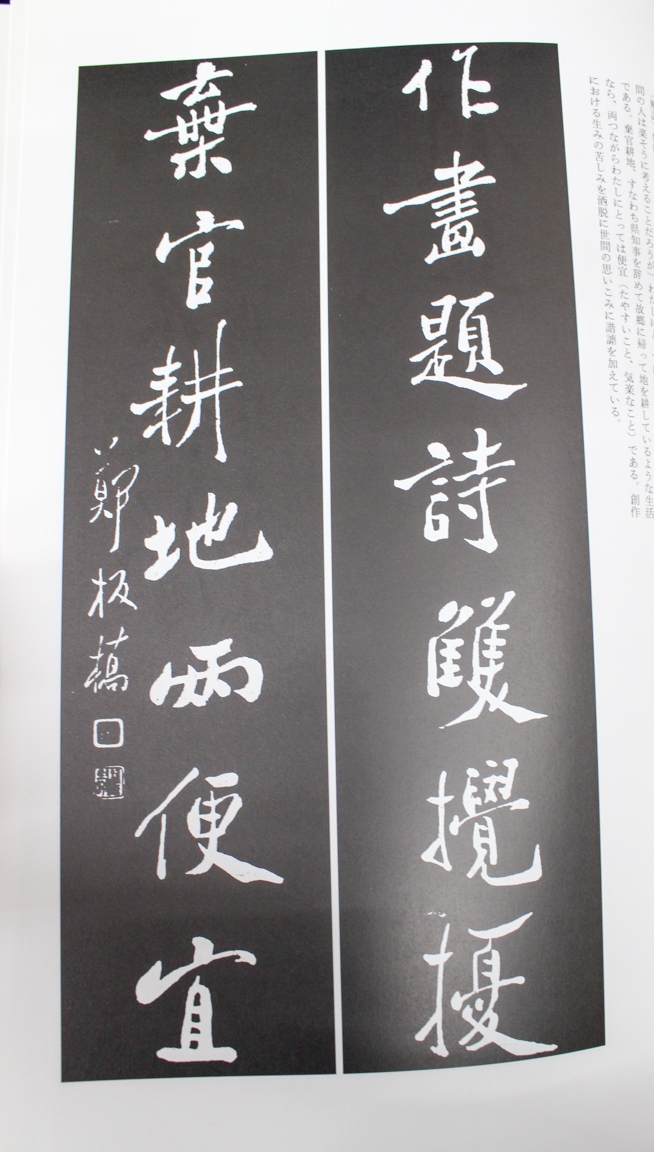 間の人は楽そうに考えることだろうが）わたしに
である。棄官耕地、すなわち県知事を辞めて故郷に帰って地を耕しているような生活
なら、両つながらわたしにとっては便宜（たやすいこと、気楽なこと）である。創作
における生みの苦しみを洒脱に世間の思いこみに諧謔を加えている。
作畫題詩雙攪擾
棄官耕地兩便宜
鄭板橋